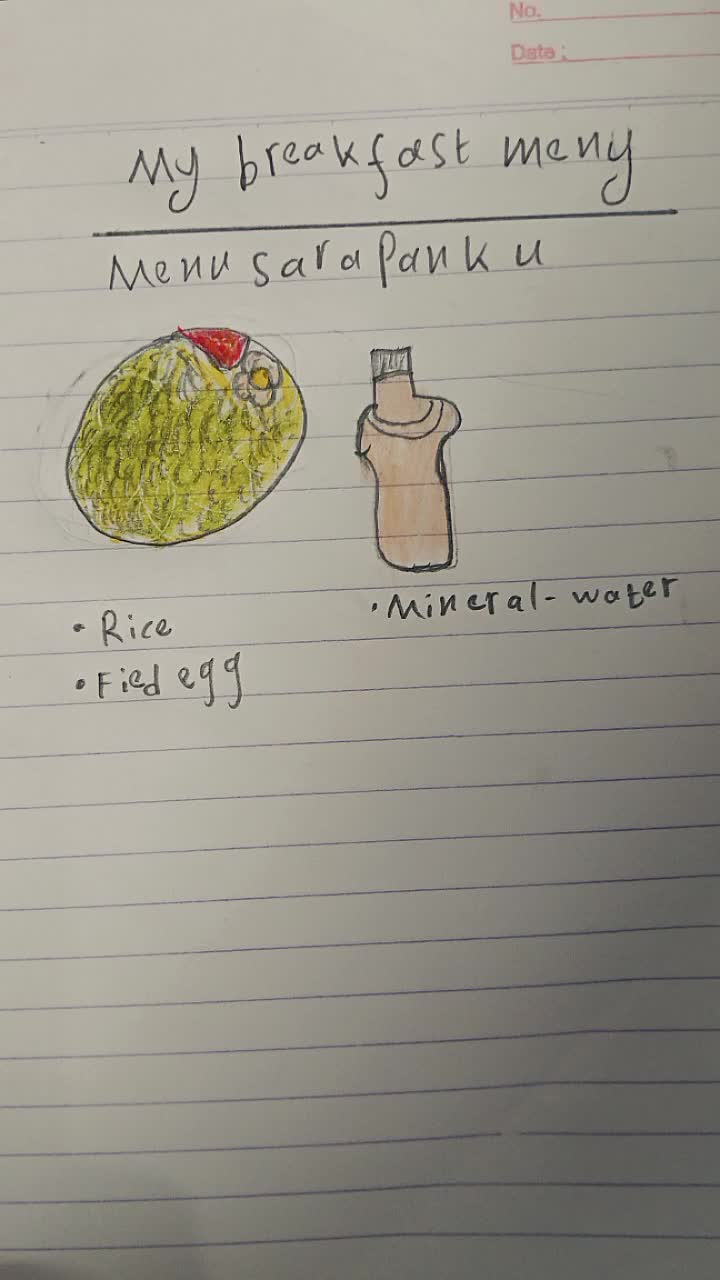 No.
Date :
My breakfast meny
Menu sarapanku
• Rice
• Fied egg
• Mineral-water